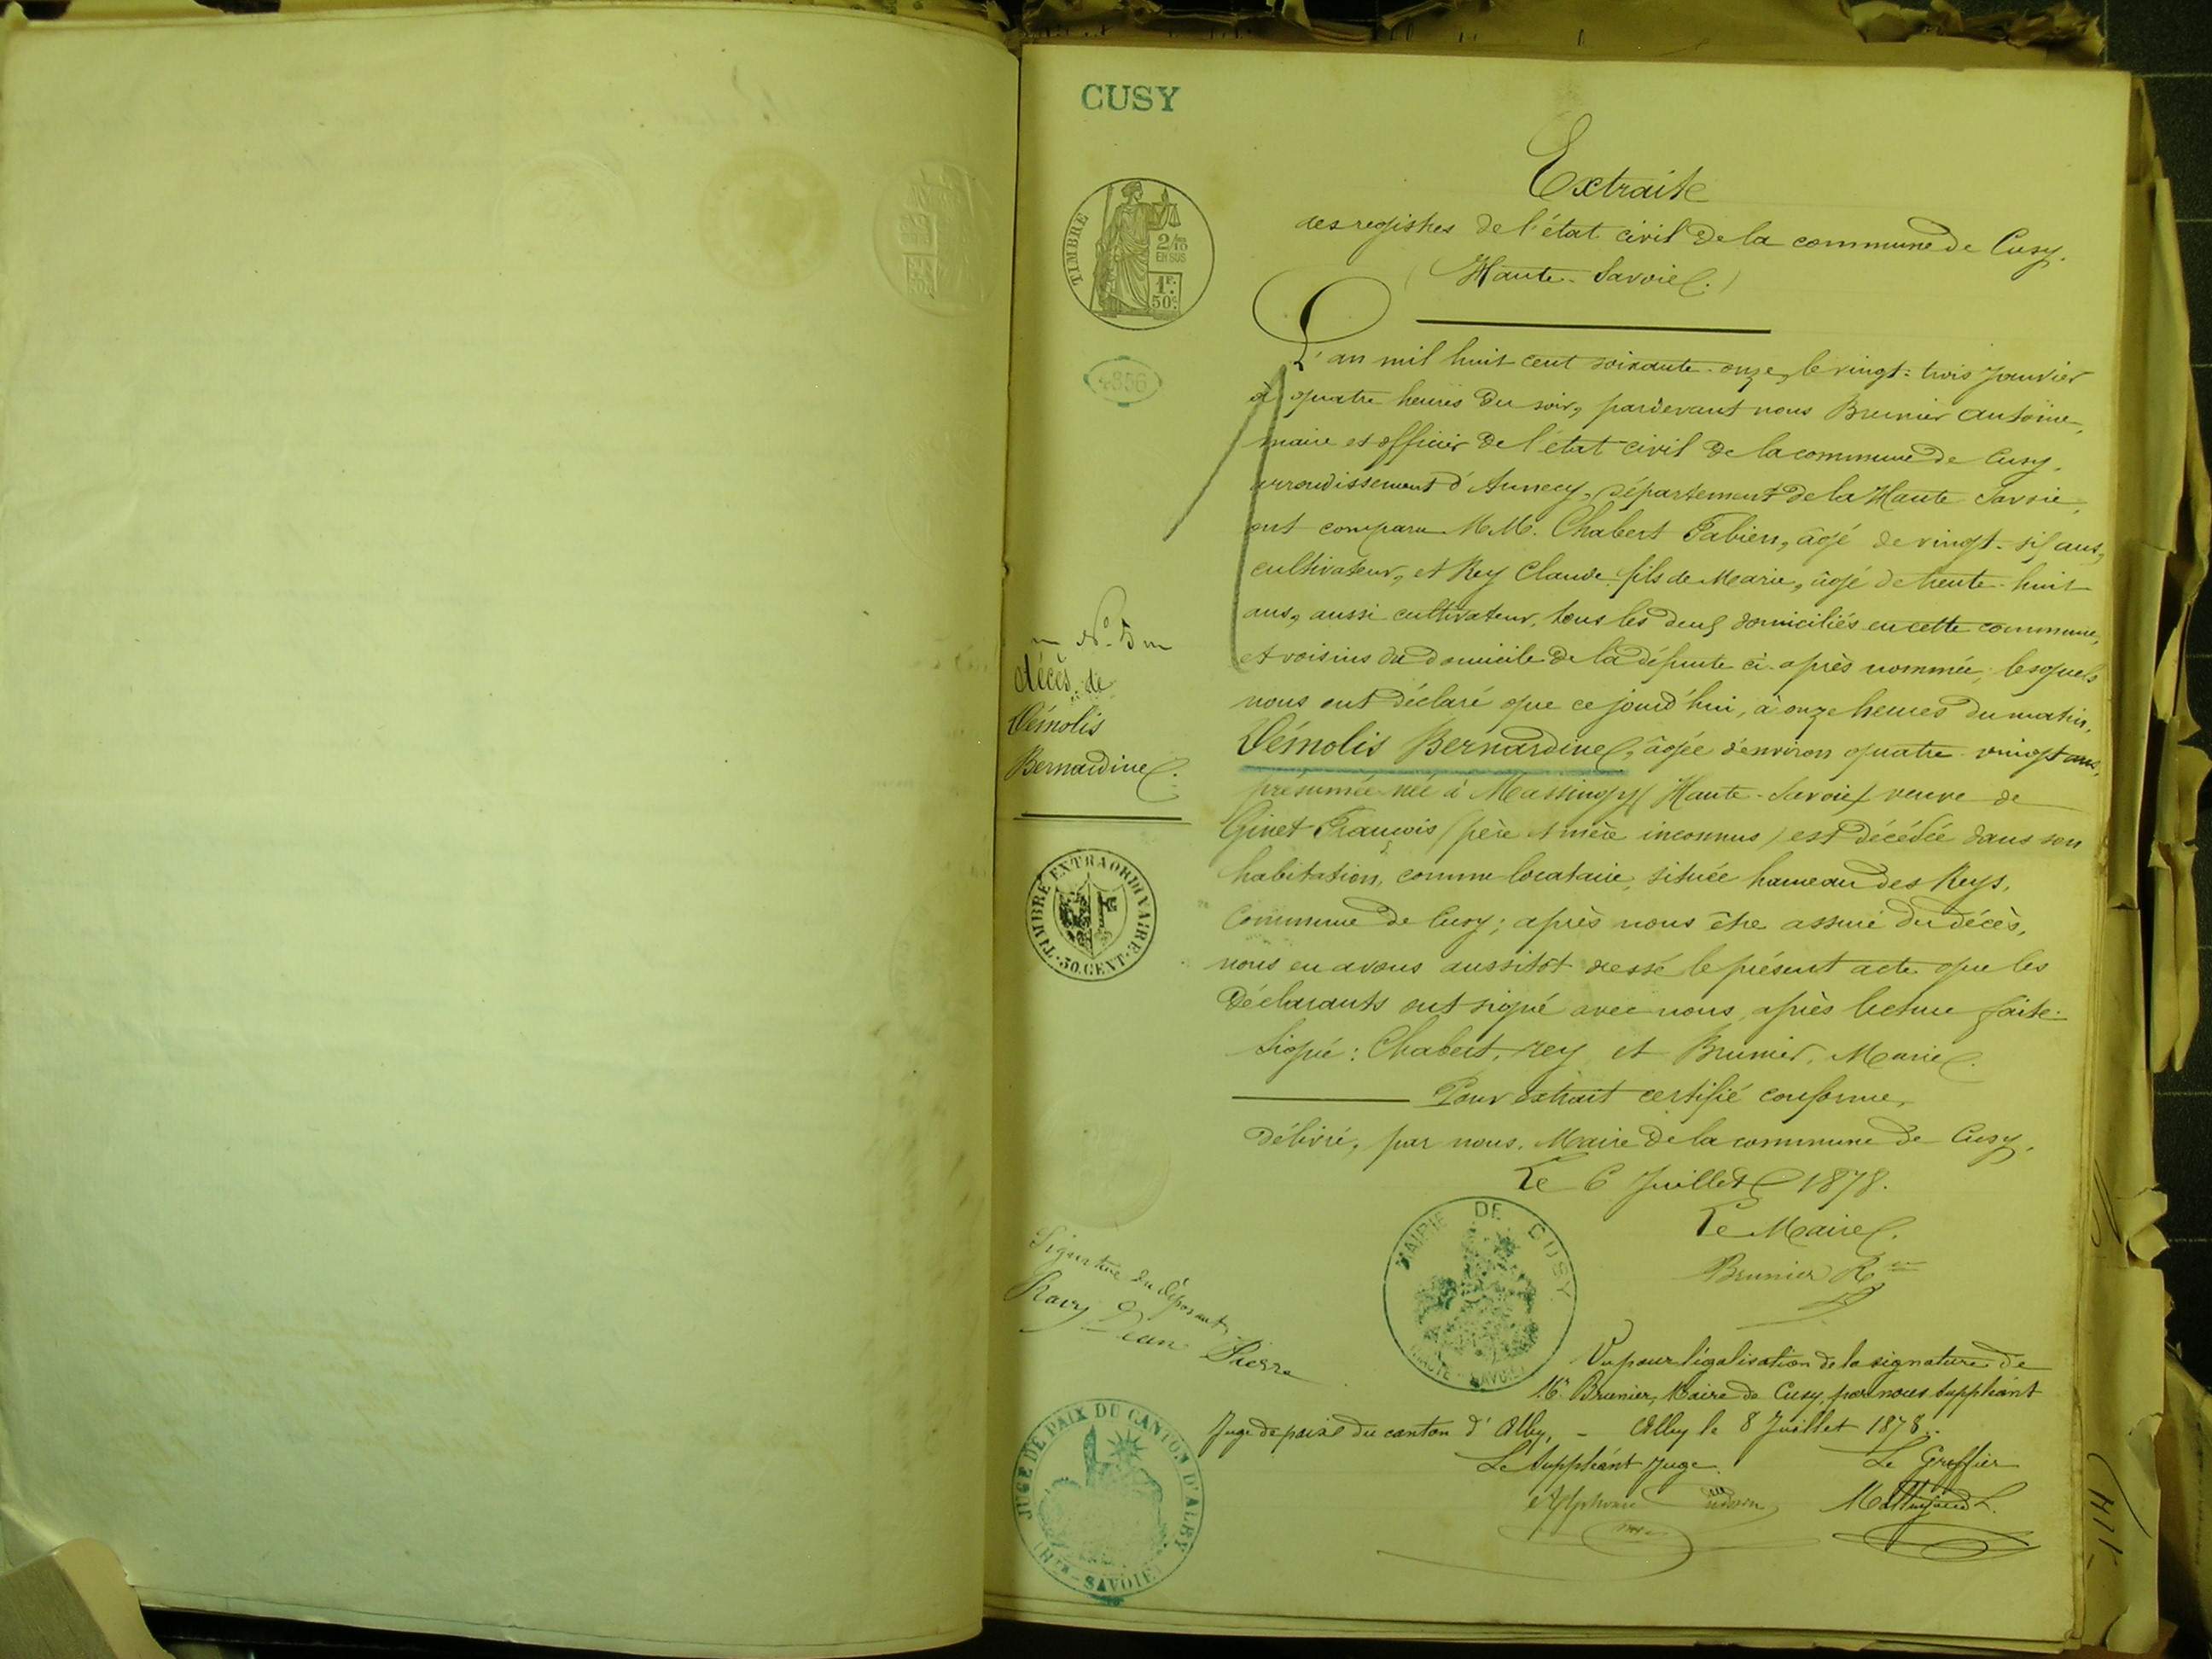 CUSY
Extrait
des registres de l'état civil de la commune de Cusy.
(Haute-Savoie.)
TIMBRE
2/10
EN SUS
1F.
50c.
4856
L'an mil huit cent soixante-onze, le vingt-trois Janvier
à quatre heures du soir, pardevant nous Brunier Antoine,
maire et officier de l'état civil de la commune de Cusy,
arrondissement d'Annecy, département de la Haute-Savoie,
ont comparu M.M. Chabert Fabien, âgé de vingt-six ans,
cultivateur, et Rey Claude fils de Marie, âgé de trente-huit
ans, aussi cultivateur, tous les deux domiciliés en cette commune,
et voisins du domicile de la défunte ci-après nommée, lesquels
nous ont déclaré que ce jourd'hui, à onze heures du matin,
Vémolis Bernardine, âgée d'environ quatre-vingt ans,
présumée née à Massingy (Haute-Savoie) veuve de
Ginet François (père et mère inconnus) est décédée dans son
habitation, comme locataire, située hameau des Reys,
Commune de Cusy; après nous être assuré du décès,
nous en avons aussitôt dressé le présent acte que les
Déclarants ont signé avec nous, après lecture faite.
Signé: Chabert, rey et Brunier, Maire.
Pour extrait certifié conforme,
délivré, par nous, Maire de la commune de Cusy,
Le 6 Juillet 1878.
Le Maire.
Brunier
N° 5
décès de
Vémolis
Bernardine.
TIMBRE EXTRAORDINAIRE
30 CENT.
Signature du déposant
Ravy Jean Pierre
MAIRIE DE CUSY
HAUTE-SAVOIE
Vu pour légalisation de la signature de
Mr Brunier, Maire de Cusy, par nous Suppléant
Juge de paix du canton d'Alby, - Alby le 8 Juillet 1878.
Le Suppléant Juge. Le Greffier
Alphonse
JUGE DE PAIX DU CANTON D'ALBY
(Hte-SAVOIE)